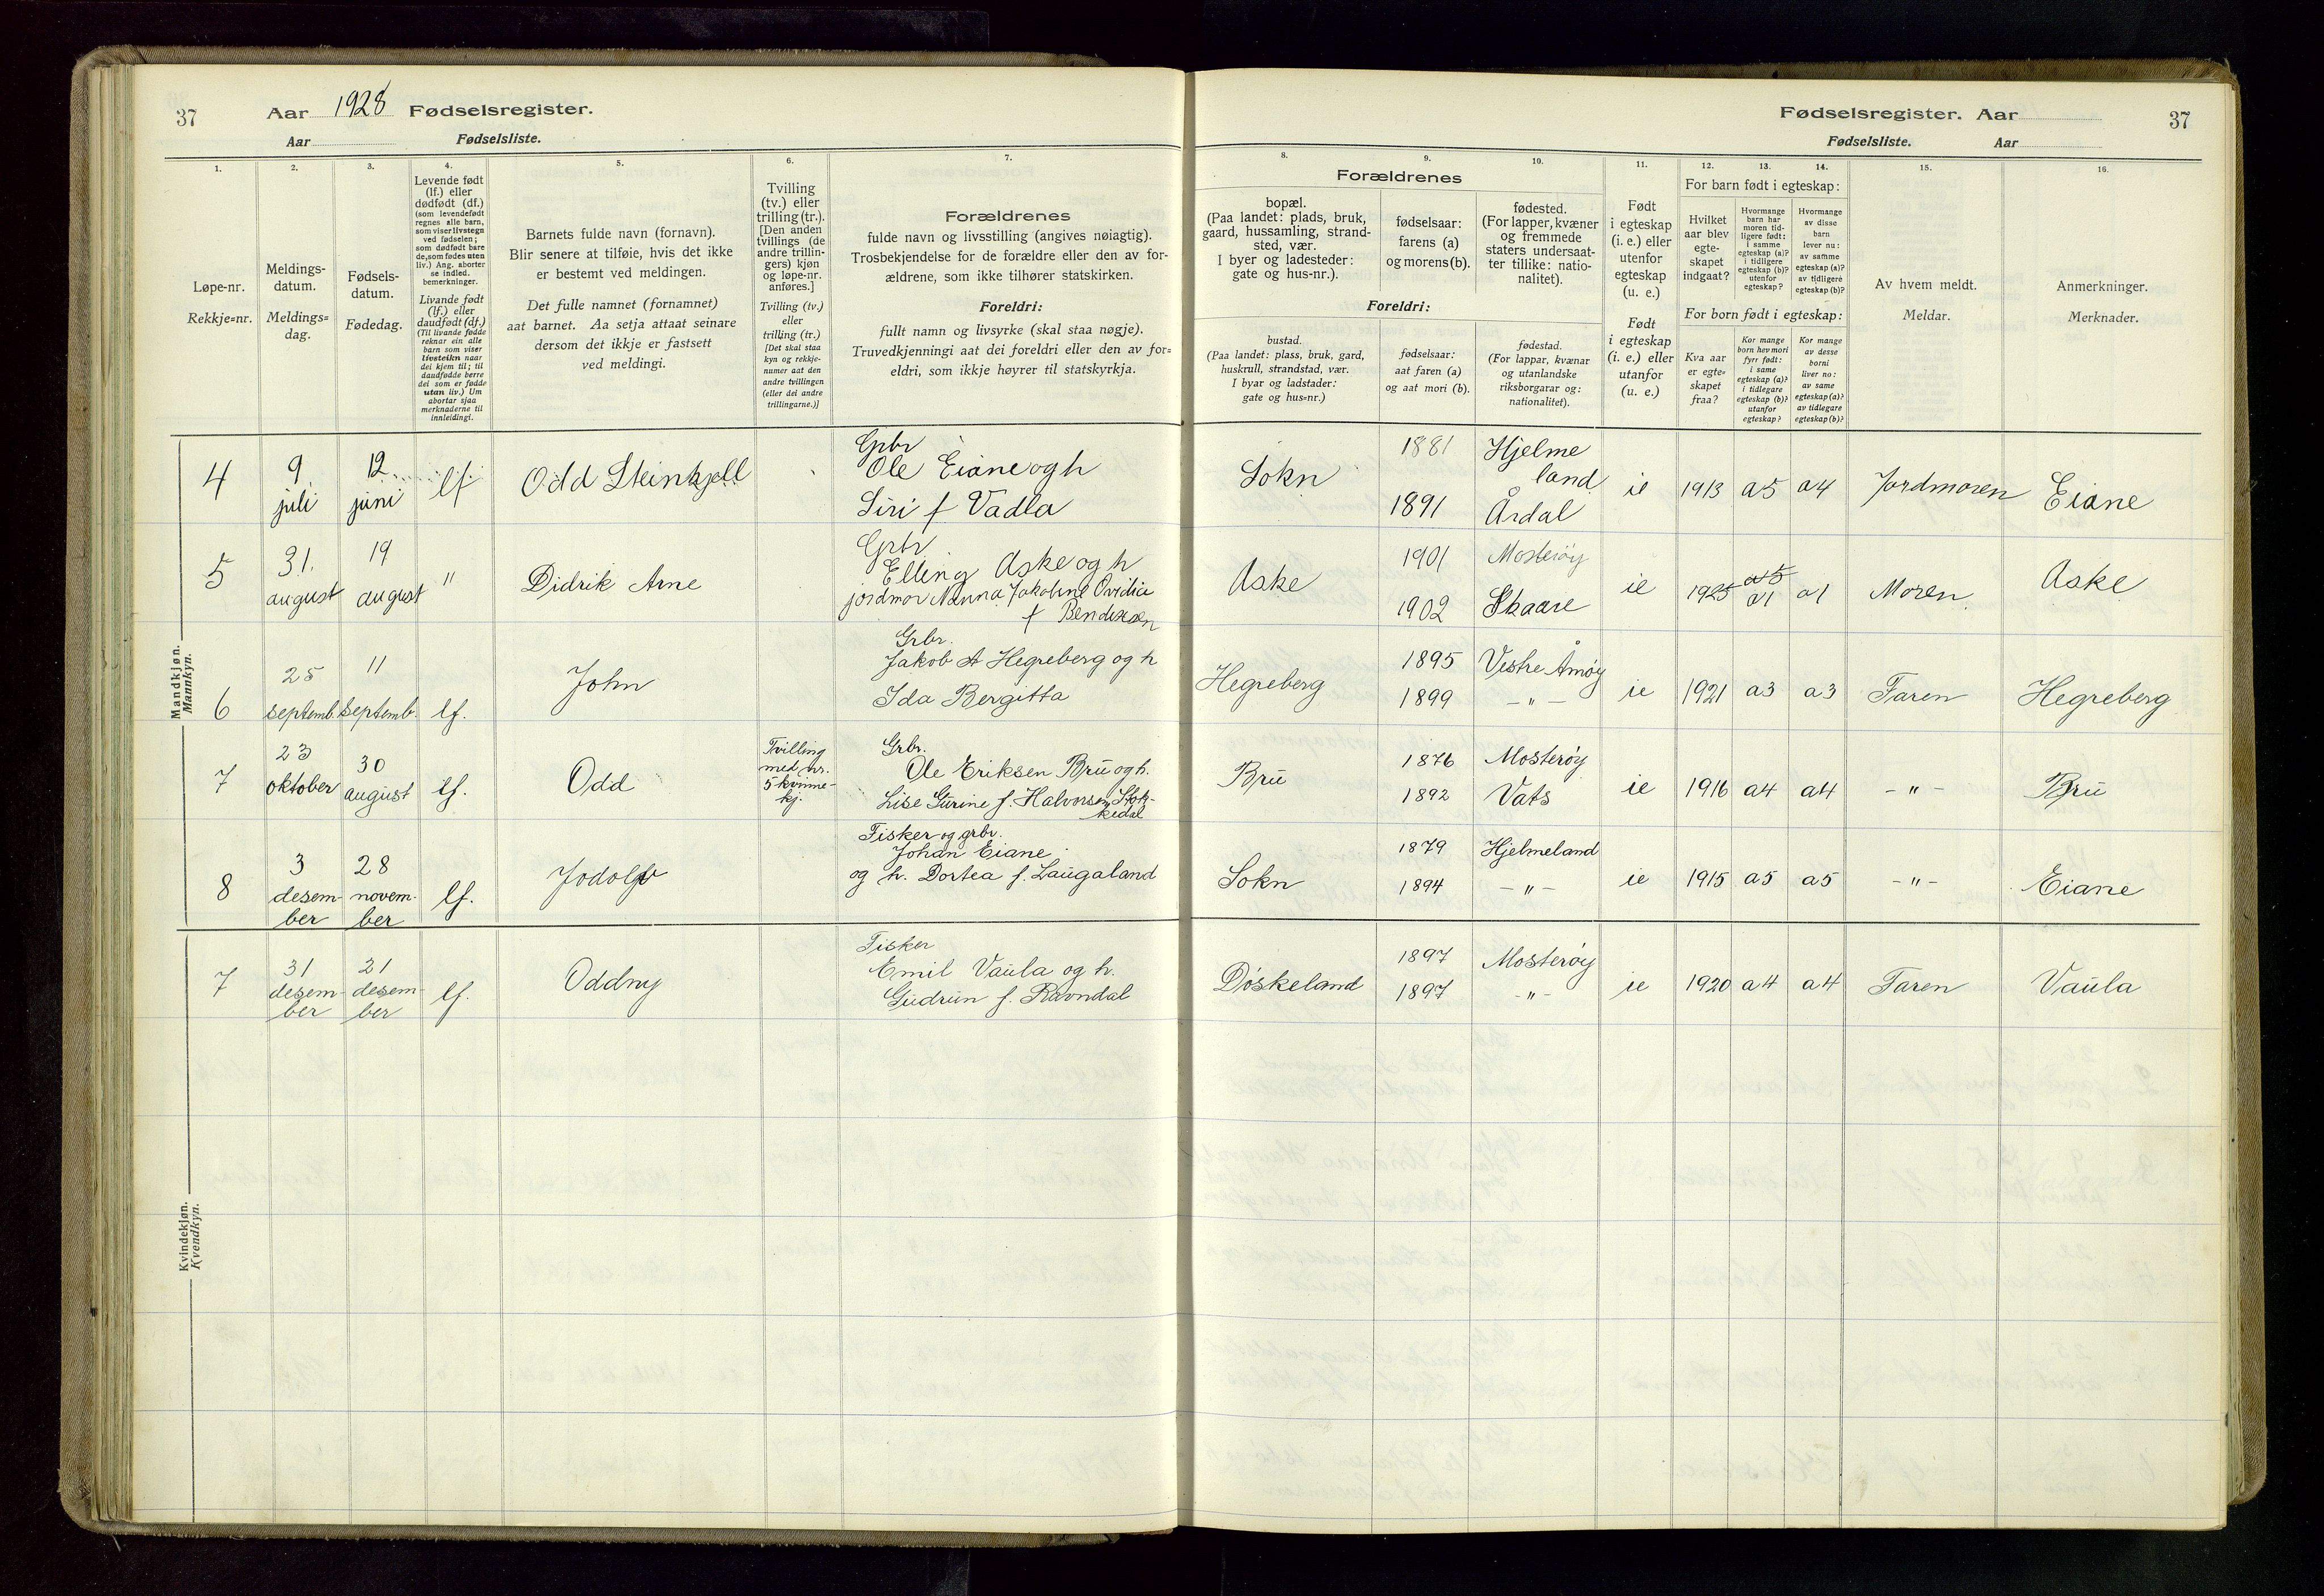 37 Aar 1928 Fødselsregister.
Aar Fødselsliste.
1.
2.
3.
4.
5.
6.
7.
Løpe-nr.
Rekkje=nr.
Meldings-
datum.
Meldings=
dag.
Fødsels-
datum.
Fødedag.
Levende født
(lf.) eller
dødfødt (df.)
(som levendefødt
regnes alle barn,
som viser livstegn
ved fødselen;
som dødfødt bare
de, som fødes uten
liv.) Ang. aborter
se indled.
bemerkninger.
Livande født
(lf.) eller
daudfødt (df.)
(Til livande fødde
reknar ein alle
barn som viser
livsteikn naar
dei kjem til; til
daudfødde berre
dei som er fødde
utan liv.) Um
abortar sjaa
merknaderne til
innleidingi.
Barnets fulde navn (fornavn).
Blir senere at tilføie, hvis det ikke
er bestemt ved meldingen.
Det fulle namnet (fornamnet)
aat barnet. Aa setja attaat seinare
dersom det ikkje er fastsett
ved meldingi.
Tvilling
(tv.) eller
trilling (tr.).
[Den anden
tvillings (de
andre trillin-
gers) kjøn
og løpe-nr.
anføres.]
Tvilling (tv.)
eller
trilling (tr.)
[Det skal staa
kyn og rekkje-
numer aat den
andre tvillingen
(eller dei andre
trillingarne.)]
Forældrenes
fulde navn og livsstilling (angives nøiagtig).
Trosbekjendelse for de forældre eller den av for-
ældrene, som ikke tilhører statskirken.
Foreldri:
fullt namn og livsyrke (skal staa nøgje).
Truvedkjenningi aat dei foreldri eller den av for=
eldri, som ikkje høyrer til statskyrkja.
Fødselsregister. Aar 37
Fødselsliste. Aar
8.
9.
10.
11.
12.
13.
14.
15.
16.
Forældrenes
bopæl.
(Paa landet: plads, bruk,
gaard, hussamling, strand-
sted, vær.
I byer og ladesteder:
gate og hus-nr.).
fødselsaar:
farens (a)
og morens (b).
fødested.
(For lapper, kvæner
og fremmede
staters undersaat-
ter tillike: natio-
nalitet).
Foreldri:
bustad.
(Paa landet: plass, bruk, gard,
huskrull, strandstad, vær.
I byar og ladstader:
gate og hus=nr.)
fødselsaar:
aat faren (a)
og aat mori (b).
fødestad.
(For lappar, kvænar
og utanlandske
riksborgarar og:
nationalitet).
Født
i egteskap
(i. e.) eller
utenfor
egteskap
(u. e.)
Født
i egteskap
(i. e.) eller
utanfor
(u. e.)
For barn født i egteskap:
Hvilket
aar blev
egte-
skapet
indgaat?
Hvormange
barn har
moren tid-
ligere født:
i samme
egteskap (a)?
i tidligere
egteskap (b)?
utenfor
egteskap?
Hvormange
av disse
barn
lever nu:
av samme
egteskap (a)?
av tidligere
egteskap (b)?
For born født i egteskap:
Kva aar
er egte=
skapet
fraa?
Kor mange
born hev mori
fyrr født:
i same
egteskap (a)?
i tidlegare
egteskap (b)?
utanfor
egteskap?
Kor mange
av desse
borni
liver no:
av same
egteskap (a)?
av tidlegare
egteskap (b)?
Av hvem meldt.
Meldar.
Anmerkninger.
Merknader.
Mandkjøn.
Mannkyn.
4 9 juli 12 juni lf. Odd Steinkjell
Grbr
Ole Eiane og h
Siri f Vadla
Sokn 1881 Hjelme
land
1891 Årdal
ie 1913 a5 a4 Jordmoren Eiane
5 31. august 19 august " Didrik Arne
Grbr
Elling Aske og h
jordmor Nanna Jakobine Ovidia
f Bendixsen
Aske 1901 Mosterøy
1902 Skaare
ie 1925 a5 a1 a1 Moren Aske
6 25 septemb. 11 septemb. lf. John
Grbr.
Jakob A Hegreberg og h
Ida Bergitta
Hegreberg 1895 Vestre Åmøy
1899 – " –
ie 1921 a3 a3 Faren Hegreberg
7 23 oktober 30 august lf. Odd
Tvilling
med nr.
5 kvinne-
kj.
Grbr.
Ole Eriksen Bru og h.
Lise Gurine f. Halvorsen Stok-
kedal
Bru 1876 Mosterøy
1892 Vats
ie 1916 a4 a4 – " – Bru
8 3 desem-
ber 28 novem-
ber lf. Jodolf
Fisker og grbr.
Johan Eiane
og h. Dortea f. Laugaland
Sokn 1879 Hjelmeland
1894 – " –
ie 1915 a5 a5 – " – Eiane
Kvindekjøn.
Kvendkyn.
7 31 desem-
ber 21 desem-
ber lf. Oddny
Fisker
Emil Vaula og h.
Gudrun f. Ravndal
Døskeland 1897 Mosterøy
1897 – " –
ie 1920 a4 a4 Faren Vaula